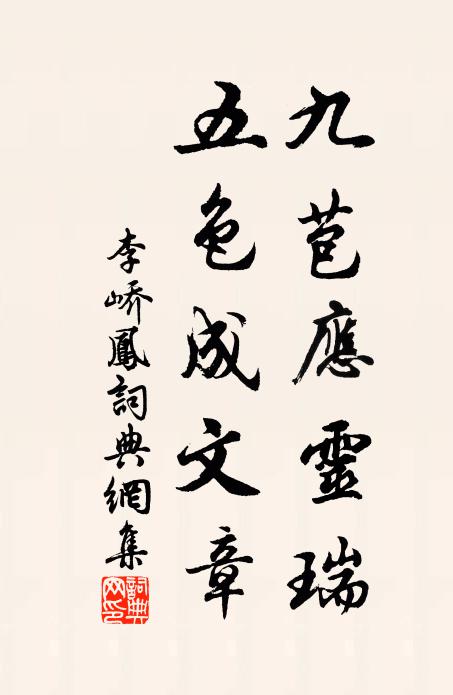 九苞應靈瑞
五色成文章
李嶠鳳詞典網集
詞典網印